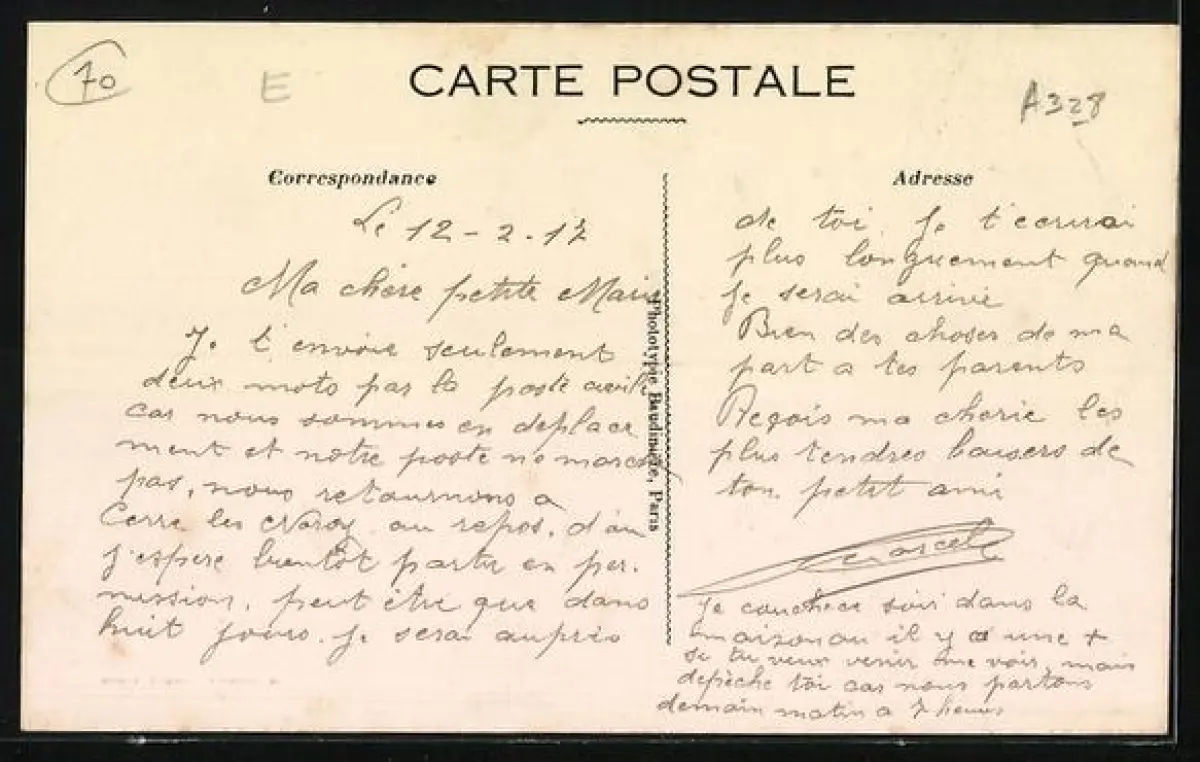 70
E
CARTE POSTALE
A328
Correspondance
Le 12-2-17
Ma chère petite Marie
Je t'envoie seulement
deux mots par la poste civile
car nous sommes en deplace
ment et notre poste ne marche
pas, nous retournons a
Cerre les Noroy au repos. d'ou
j'espere bientôt partir en per.
mission, peut être que dans
huit jours je serai auprès
Phototypie Baudinière, Paris
Adresse
de toi. Je t'ecrirai
plus longuement quand
je serai arrivé
Bien des choses de ma
part a tes parents
Reçois ma cherie les
plus tendres baisers de
ton petit ami
Marcel
Je couche ce soir dans la
maison ou il y a une +
si tu veux venir me voir, mais
depèche toi car nous partons
demain matin a 7 heures